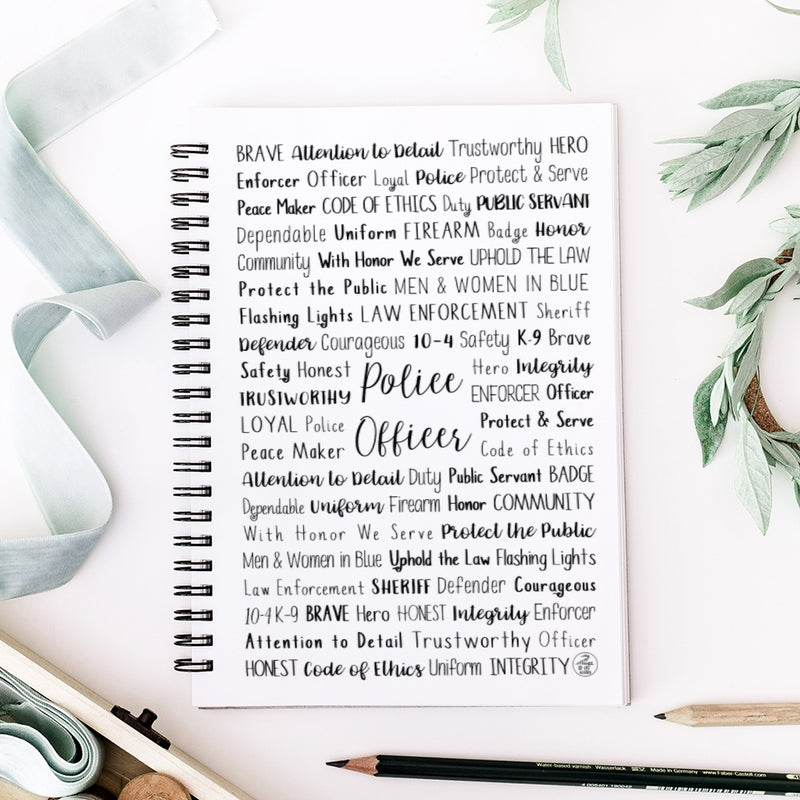 BRAVE Attention to Detail Trustworthy HERO
Enforcer Officer Loyal Police Protect & Serve
Peace Maker CODE OF ETHICS Duty PUBLIC SERVANT
Dependable Uniform FIREARM Badge Honor
Community With Honor We Serve UPHOLD THE LAW
Protect the Public MEN & WOMEN IN BLUE
Flashing Lights LAW ENFORCEMENT Sheriff
Defender Courageous 10-4 Safety K-9 Brave
Safety Honest Hero Integrity
TRUSTWORTHY ENFORCER Officer
Police
LOYAL Police Protect & Serve
Officer
Peace Maker Code of Ethics
Attention to Detail Duty Public Servant BADGE
Dependable Uniform Firearm Honor COMMUNITY
With Honor We Serve Protect the Public
Men & Women in Blue Uphold the Law Flashing Lights
Law Enforcement SHERIFF Defender Courageous
10-4 K-9 BRAVE Hero HONEST Integrity Enforcer
Attention to Detail Trustworthy Officer
HONEST Code of Ethics Uniform INTEGRITY
Water-based varnish Wasserlack Made in Germany www.Faber-Castell.com